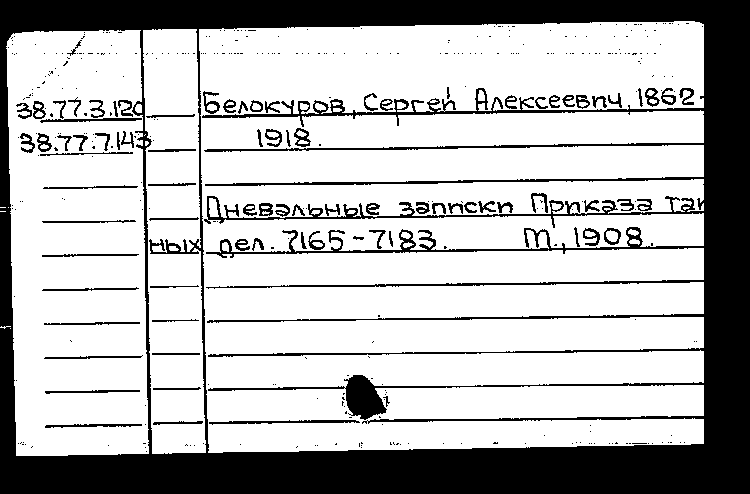 38.77.3.120 Белокуров, Сергей Алексеевич, 1862-
38.77.7.143 1918.
Дневальные записки Приказа тай
ных дел. 7165-7183. М., 1908.